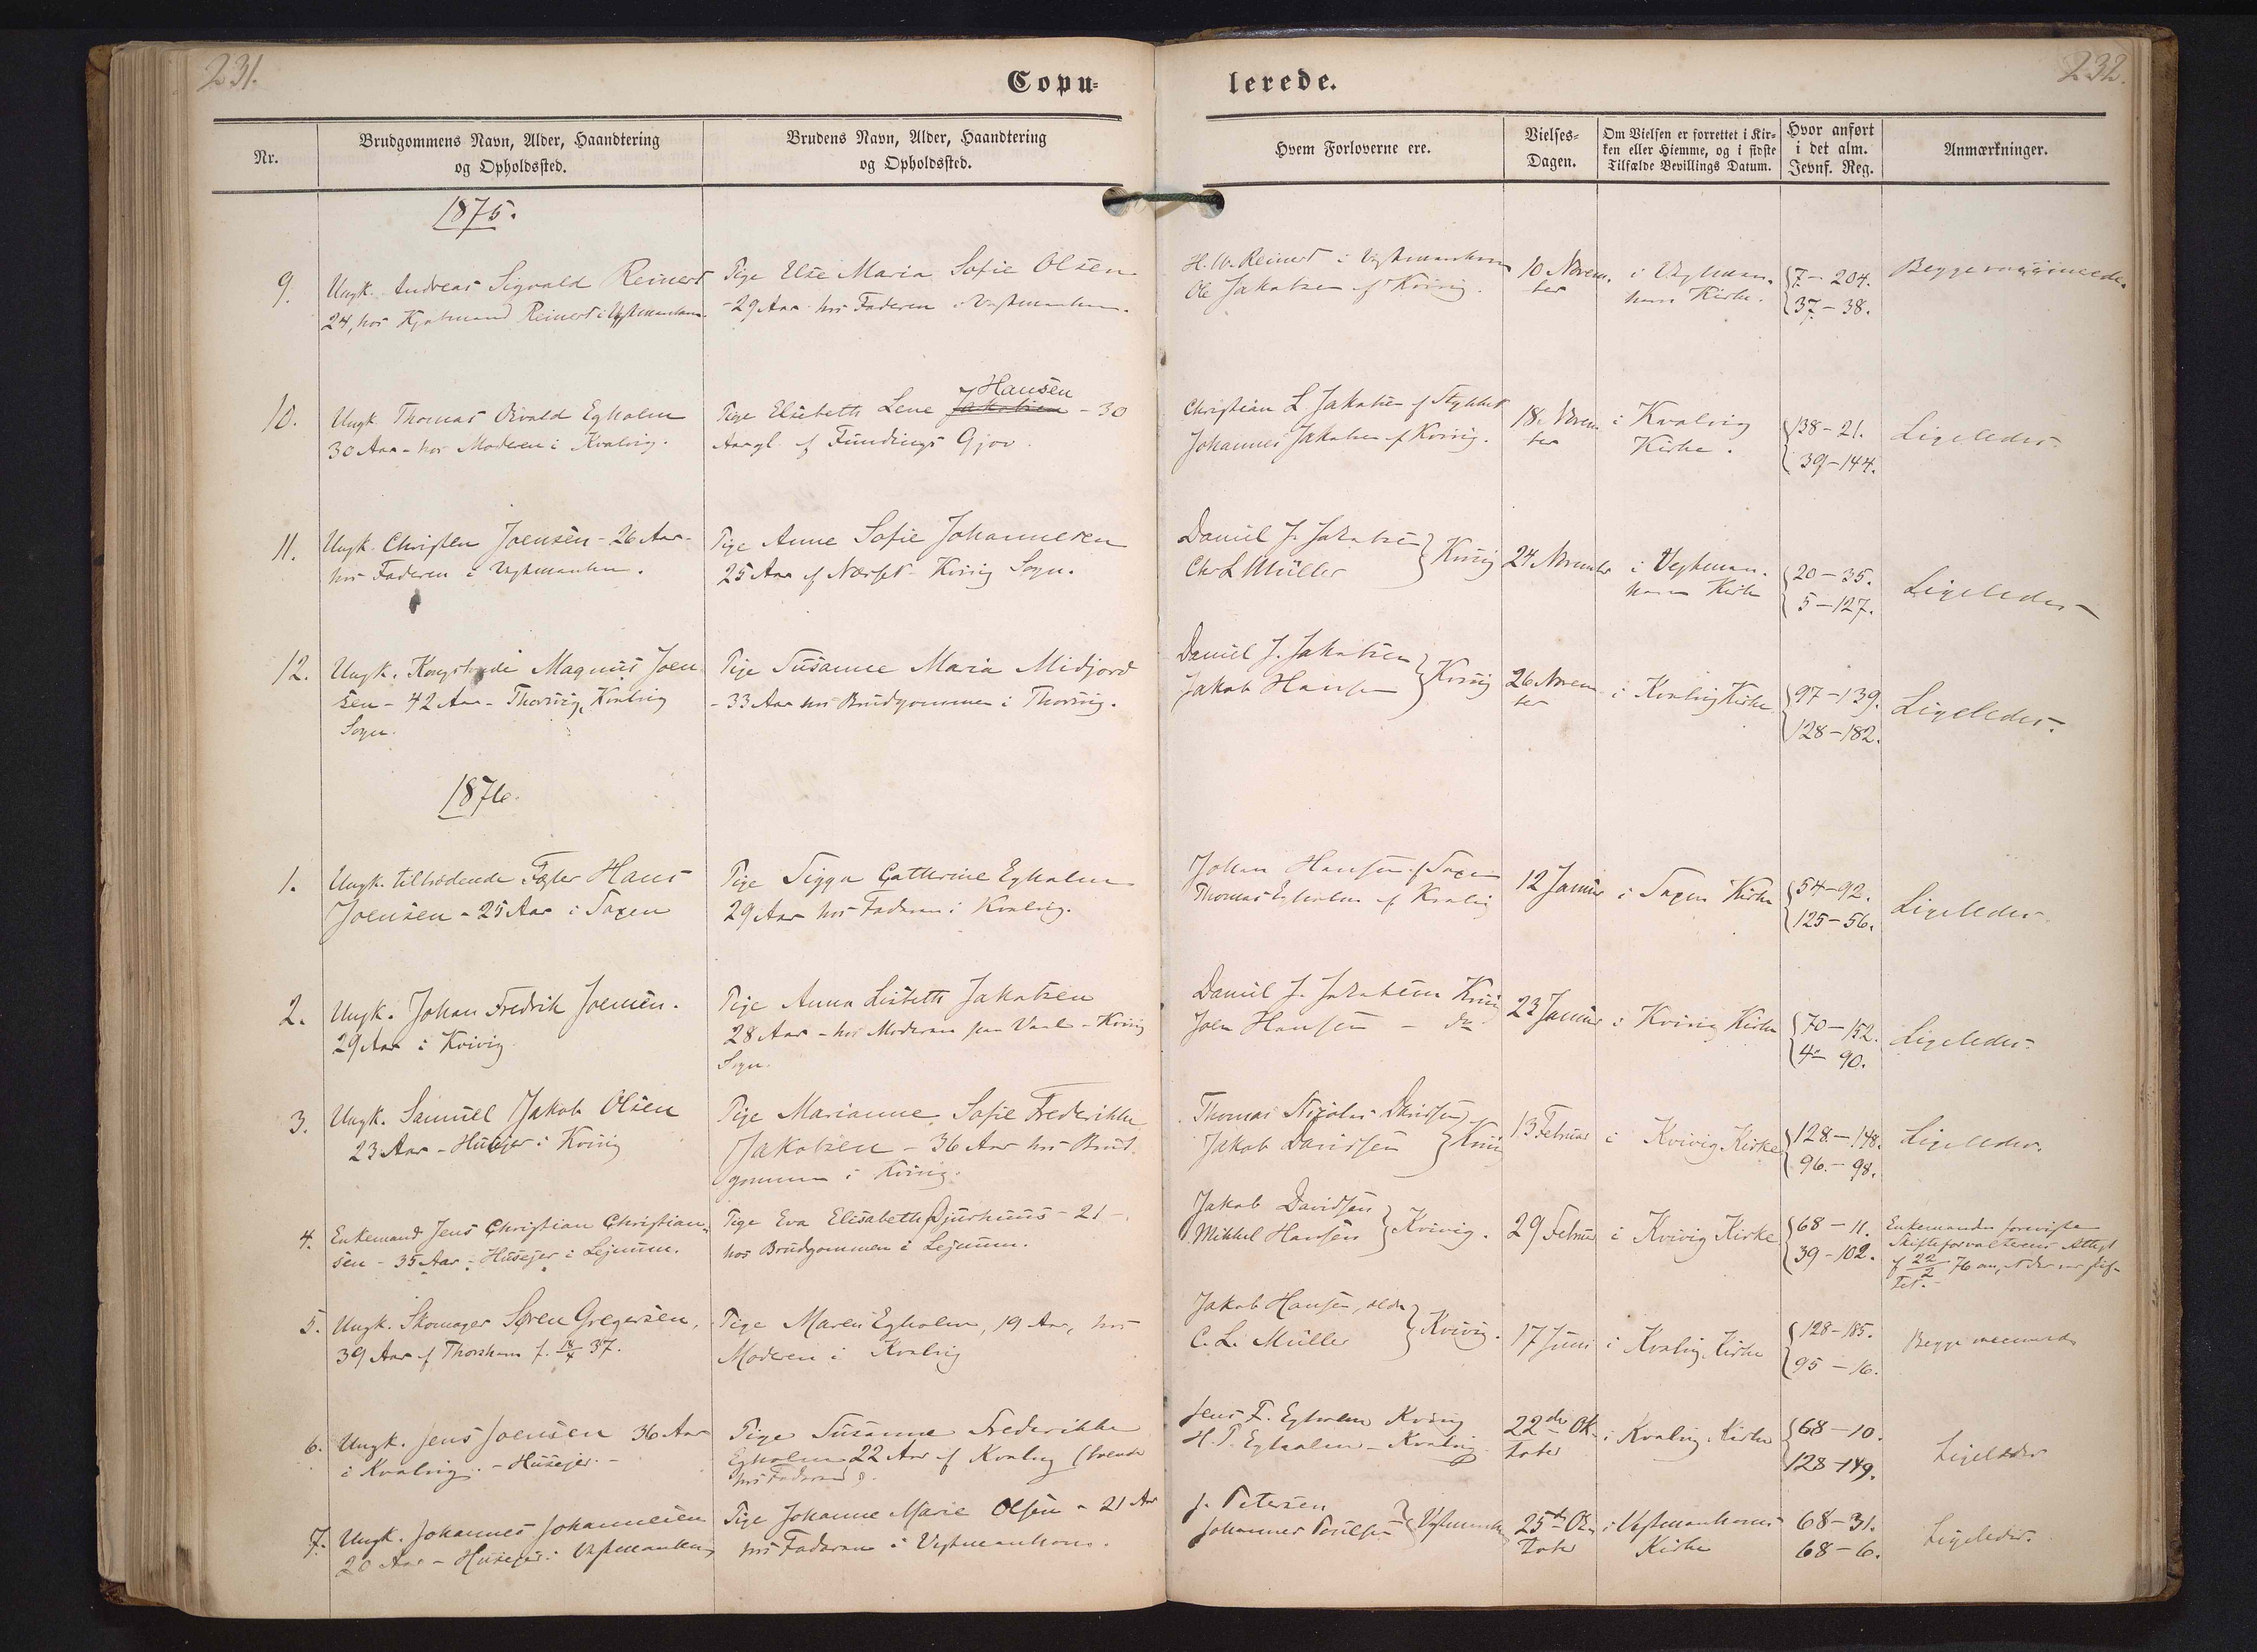 231.
232.
Copu-
lerede.
Nr.
Brudgommens Navn, Alder, Haandtering
og Opholdssted.
Brudens Navn, Alder, Haandtering
og Opholdssted.
Hvem Forloverne ere.
Vielses-
Dagen.
Om Vielsen er forrettet i Kir-
ken eller Hiemme, og i sidste
Tilfælde Bevillings Datum.
Hvor anført
i det alm.
Jevnf. Reg.
Anmærkninger.
1875.
9.
Ungk. Andreas Sigvald Reinert
24, hos Kjøbmand Reinert i Vestmanhavn.
Pige Else Maria Sofie Olsen
- 29 Aar hos Faderen i Vestmanhavn.
H. W. Reinert i Vestmanhavn
Ole Jakobsen af Kvivig.
10 Novem-
ber
i Vestman-
havn Kirke.
7 - 204.
37 - 38.
Begge vaccinerede.
10.
Ungk. Thomas Osvald Egholm
30 Aar - hos Moderen i Kvalvig.
Hansen
Pige Elsebeth Lene Jakobsen - 30
Aar gl. af Fundings Gjov.
Christian L Jakobsen af Stykket
Johannes Jakobsen af Kvivig.
18. Novem-
ber
i Kvalvig
Kirke.
138 - 21.
39 - 144.
Ligeledes.
11.
Ungk. Christen Joensen - 26 Aar -
hos Faderen i Vestmanhavn.
Pige Anne Sofie Johannesen
25 Aar af Norset - Kvivig Sogn.
Daniel J. Jakobsen
Chr L Müller
Kvivig
24 November
i Vestman-
havn Kirke
20 - 35.
5 - 127.
Ligeledes -
12.
Ungk. Kongsbonde Magnus Joen
sen - 42 Aar - Thorsvig, Kvalvig
Sogn.
Pige Susanne Maria Midjord
- 33 Aar hos Brudgommen i Thorsvig.
Daniel J. Jakobsen
Jakob Hansen
Kvivig
26 Novem
ber
i Kvalvig Kirke
97 - 139.
128 - 182.
Ligeledes.
1876.
1.
Ungk. tiltrædende Fæster Hans
Joensen - 25 Aar i Saxen
Pige Sigga Cathrine Egholm
29 Aar hos Faderen i Kvalvig.
Johan Hansen af Saxen
Thomas Egholm af Kvalvig
12 Januar
i Saxen Kirke
54 - 92.
125 - 56.
Ligeledes.
2.
Ungk. Johan Fredrik Joensen.
29 Aar i Kvivig
Pige Anna Lisbeth Jakobsen
28 Aar - hos Moderen paa Vaal - Kvivig
Sogn.
Daniel J. Jakobsen Kvivig
Joen Hansen - do
23 Januar
i Kvivig Kirke
70 - 152.
4 - 90.
Ligeledes.
3.
Ungk. Samuel Jakob Olsen
23 Aar - Husejer i Kvivig
Pige Marianne Sofie Frederikke
Jakobsen - 36 Aar hos Brud-
gommen i Kvivig.
Thomas Nicolai Davidsen
Jakob Davidsen
13 Februar
i Kvivig Kirke
128. - 148.
96. - 98.
Ligeledes.
4.
Enkemand Jens Christian Christian-
sen - 35 Aar - Husejer i Lejnum.
Pige Eva Elisabeth Djurhuus - 21 -
hos Brudgommen i Lejnum.
Jakob Davidsen
Mikkel Hansen
Kvivig.
29 Februar
i Kvivig Kirke
68 - 11.
39 - 102.
Enkemanden foreviste
Skifteforvalterens Attest
af 22/2 76 om, at der var skif-
tet.
5.
Ungk. Skomager Søren Gregersen,
39 Aar af Thorshavn f. 18/4 37.
Pige Maren Egholm, 19 Aar, hos
Moderen i Kvalvig
Jakob Hansen, ældre
C. L. Müller
Kvivig.
17 Juni
i Kvalvig Kirke
128 - 185.
95 - 16.
Begge vaccinerede
6.
Ungk. Jens Joensen 36 Aar
i Kvalvig. - Husejer. -
Pige Susanne Frederikke
Egholm 22 Aar af Kvalvig (boende
hos Faderen).
Jens F. Egholm Kvivig
H. P. Egholm - Kvalvig
22de Ok-
tober
i Kvalvig Kirke
68 - 10.
128 - 149.
Ligeledes
7.
Ungk. Johannes Johannesen
20 Aar - Husejer i Vestmanhavn
Pige Johanne Marie Olsen - 21 Aar
hos Faderen i Vestmanhavn.
J. Petersen
Johannes Poulsen
Vestmanhavn
25de Ok-
tober
i Vestmanhavns
Kirke
68 - 31.
68 - 6.
Ligeledes.